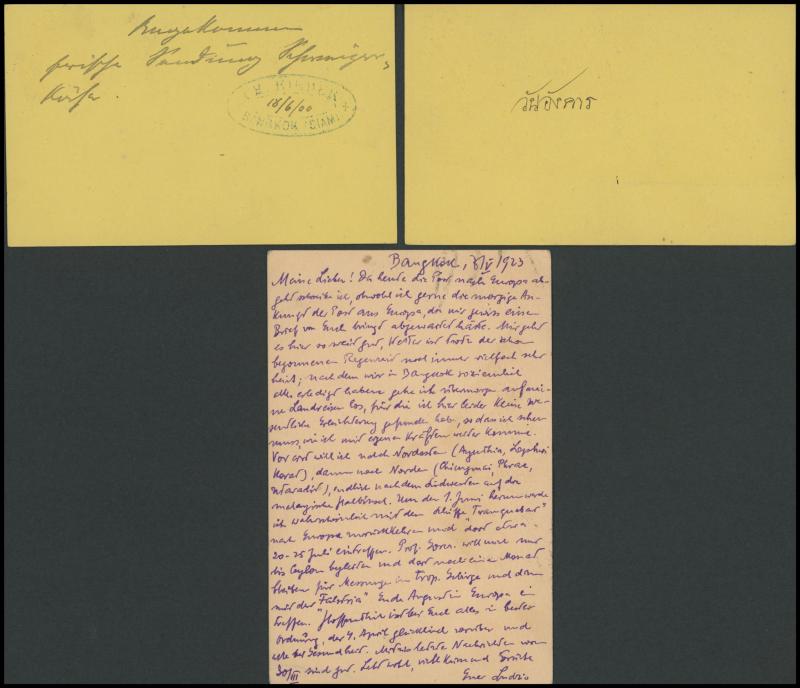 Angekommen
frische Sendung Schweizer-
Käse.
18/6/00
BANGKOK (SIAM)
วันอังคาร
Bangkok, 8/V 1923
Meine Lieben! Da heute die Post nach Europa ab-
geht schreibe ich, obwohl ich gerne die morgige An-
kunft der Post aus Europa, die mir gewiss einen
Brief von Euch bringt abgewartet hätte. Mir geht
es hier soweit gut, Wetter ist trotz der schon
begonnenen Regenzeit noch immer vielfach sehr
heiss; nachdem wir in Bangkok so ziemlich
alles erledigt haben gehe ich übermorgen auf mei-
ne Landreisen los, für die ich hier leider keine we-
sentliche Erleichterung gefunden habe, so dass ich sehen
muss, wie ich mit eigenen Kräften weiter komme.
Vorerst will ich nach Nordosten (Ayuthia, Lopburi
Korat), dann nach Norden (Chiengmai, Phrae,
Utaradit), endlich nach dem Südwesten auf die
malayische Halbinsel. Um den 1. Juni herum werde
ich wahrscheinlich mit dem Schiffe "Tranquebar"
nach Europa zurückkehren und dort etwa
20-25 Juli eintreffen. Prof. will mich nur
bis Ceylon begleiten und dort noch einen Monat
bleiben für Messungen im trop. Gebirge und dann
mit der "Falstria" Ende August in Europa ein-
treffen. Hoffentlich ist bei Euch alles in bester
Ordnung, der 4. April glücklich vorüber und
alle bei Gesundheit. Meine letzte Nachrichten vom
30/III sind gut. Lebt wohl, viele Küsse und Grüsse
Euer Ludwig